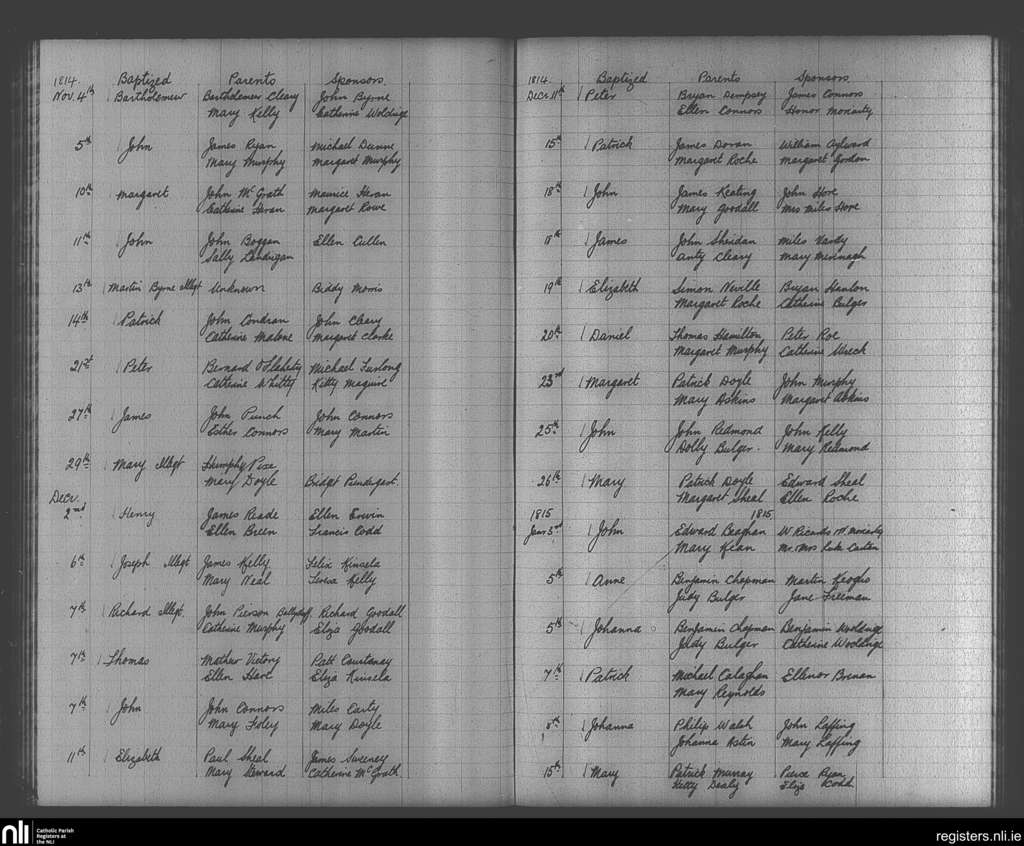 1814. Baptized Parents Sponsors
Nov. 4th Bartholomew Bartholomew Cleary John Byrne
Mary Kelly Catherine Woldrige
5th John James Ryan Michael Dunne
Mary Murphy Margaret Murphy
10th Margaret John McGrath Maurice Heran
Catherine Heran Margaret Rowe
11th John John Boggan Ellen Cullen
Sally Landrigan
13th Martin Byrne illegt Unknown Biddy Morris
14th Patrick John Condran John Cleary
Catherine Malone Margaret Clarke
21st Peter Bernard O'Flaherty Michael Furlong
Catherine Whitty Kitty Maguire
27th James John Punch John Connors
Esther Connors Mary Martin
29th Mary illegt Humphy
Mary Doyle Bridget Prendergast.
Decr.
2nd Henry James Reade Ellen Erwin
Ellen Breen Francis Codd
6th Joseph illegt James Kelly Felix Kinsela
Mary Neal Teresa Kelly
7th Richard illegt. John Pierson Richard Goodall
Catherine Murphy Eliza Goodall
7th Thomas Mathew Victory Patt Courtanay
Ellen Hart Eliza Kinsela
7th John John Connors Miles Carty
Mary Foley Mary Doyle
11th Elizabeth Paul Sheal James Sweeney
Mary Steward Catherine McGrath
1814. Baptized Parents Sponsors
Decr 11th Peter Bryan Dempsey James Connors
Ellen Connors Honor Moriarty
15th Patrick James Doran William Aylward
Margaret Roche Margaret Gordon
18th John James Keating John Hore
Mary Goodall Mrs Miles Hore
18th James John Sheridan Miles Vardy
Anty Cleary Mary Mernagh
19th Elizabeth Simon Neville Bryan Hanlon
Margaret Roche Catherine Bulger
20th Daniel Thomas Hamilton Peter Roe
Margaret Murphy Catherine Wreck
23rd Margaret Patrick Doyle John Murphy
Mary Askins Margaret Askins
25th John John Redmond John Kelly
Dolly Bulger. Mary Redmond
26th Mary Patrick Doyle Edward Sheal
Margaret Sheal Ellen Roche
1815 1815
Jany 3rd John Edward Beaghan W Ricards
Mary Kean Mr. Mrs Luke
5th Anne Benjamin Chapman Martin Keoghs
Judy Bulger Jane Freeman
5th Johanna Benjamin Chapman Benjamin Wooldrige
Judy Bulger Catherine Wooldrige
7th Patrick Michael Calaghan Ellenor Brenan
Mary Reynolds
8th Johanna Philip Walsh John Laffing
Johanna Astin Mary Laffing
15th Mary Patrick Murray Pierce Ryan
Kitty Dealy Eliza Codd
nli Catholic Parish
Registers at
the NLI
registers.nli.ie